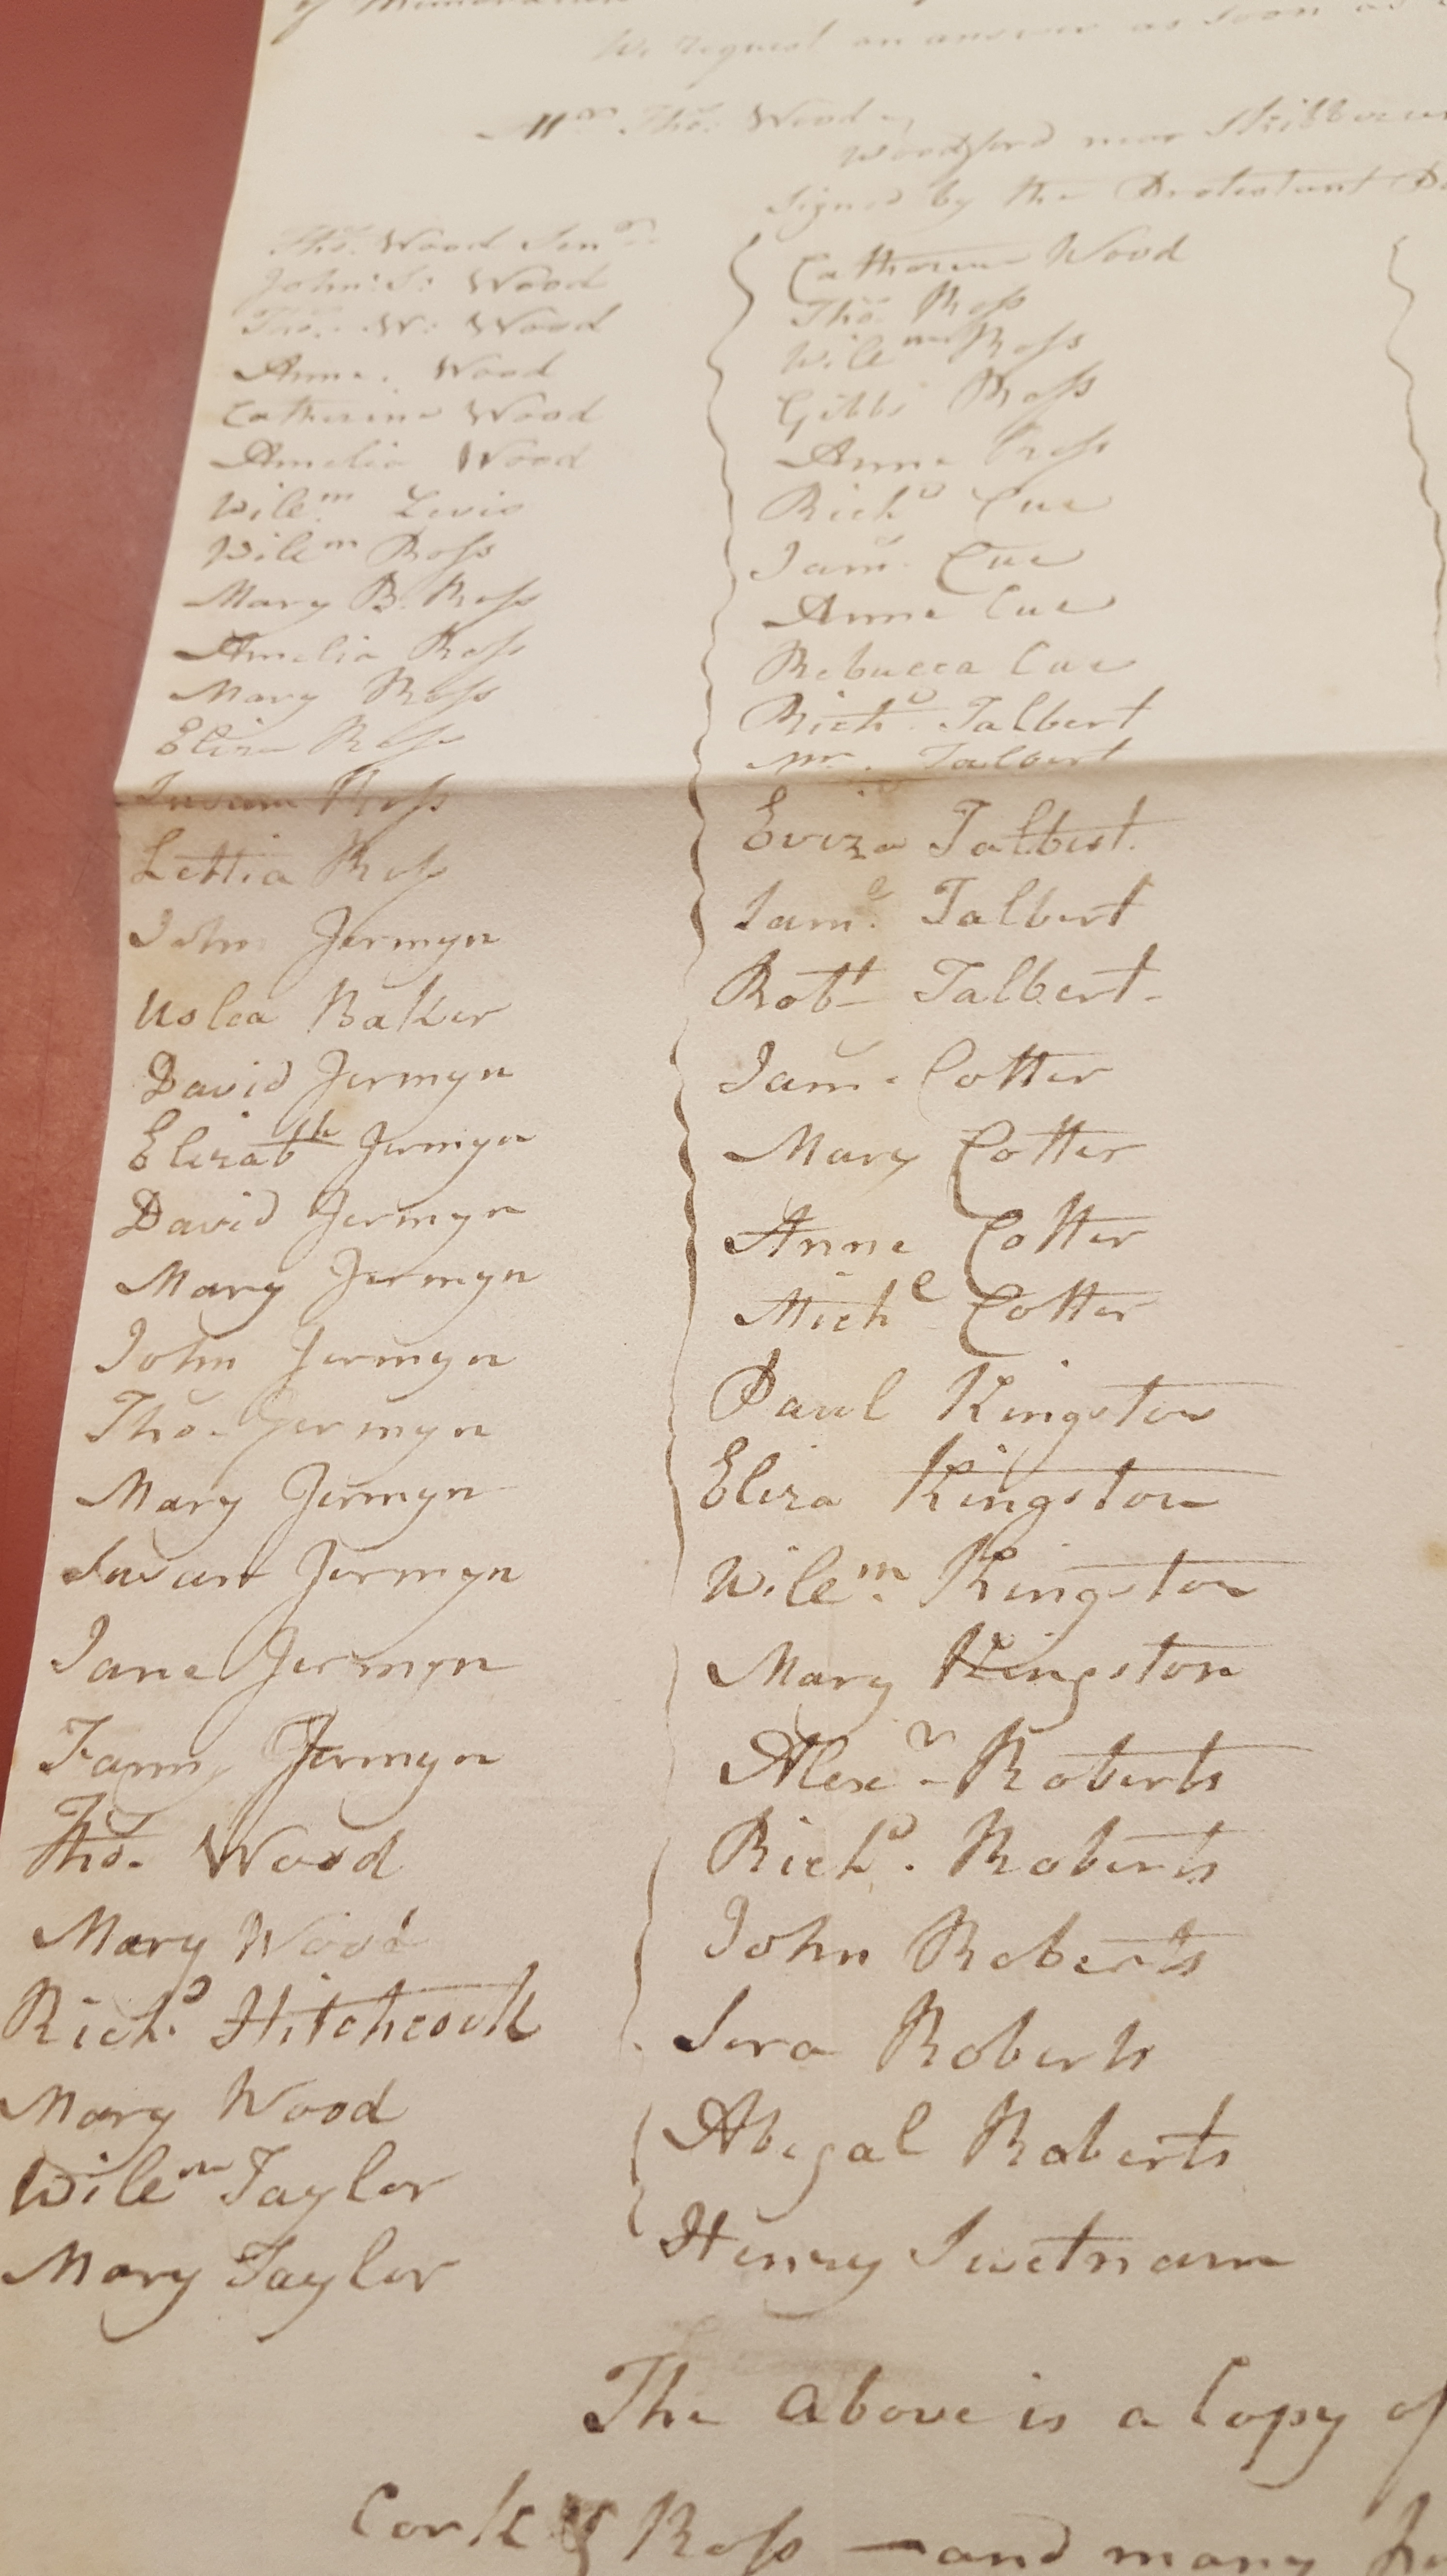 of Memorialists
We request an answer as soon as
Mr. Thos. Wood
Woodford near Skibbereen
Signed by the Protestant
Thos. Wood Senr.
John: S: Wood
Thos. W: Wood
Anne. Wood
Catherine Wood
Amelia Wood
Wilem. Levis
Wilem Ross
Mary B. Ross
Amelia Ross
Mary Ross
Eliza Ross
Susan Ross
Lettia Ross
John Jermyn
Baker
David Jermyn
Elizabth Jermyn
David Jermyn
Mary Jermyn
John Jermyn
Tho. Jermyn
Mary Jermyn
Susan Jermyn
Jane Jermyn
Fanny Jermyn
Tho. Wood
Mary Wood
Richd. Hitchcock
Mary Wood
Wilem Taylor
Mary Taylor
Catherine Wood
Tho. Ross
Wilem Ross
Gibbs Ross
Anne Ross
Richd Cue
Jam. Cue
Anne Cue
Rebucca Cue
Richd. Talbert
Mr. Talbert
Eviza Talbert.
Jams. Talbert
Robt Talbert
Jam. Cotter
Mary Cotter
Anne Cotter
Michl Cotter
Paul Kingston
Eliza Kingston
Wilem. Kingston
Mary Kingston
Alexr. Roberts
Richd. Roberts
John Roberts
Sera Roberts
Abigal Roberts
Henry Swetnam
The above is a Copy of
Cork & Ross — and many